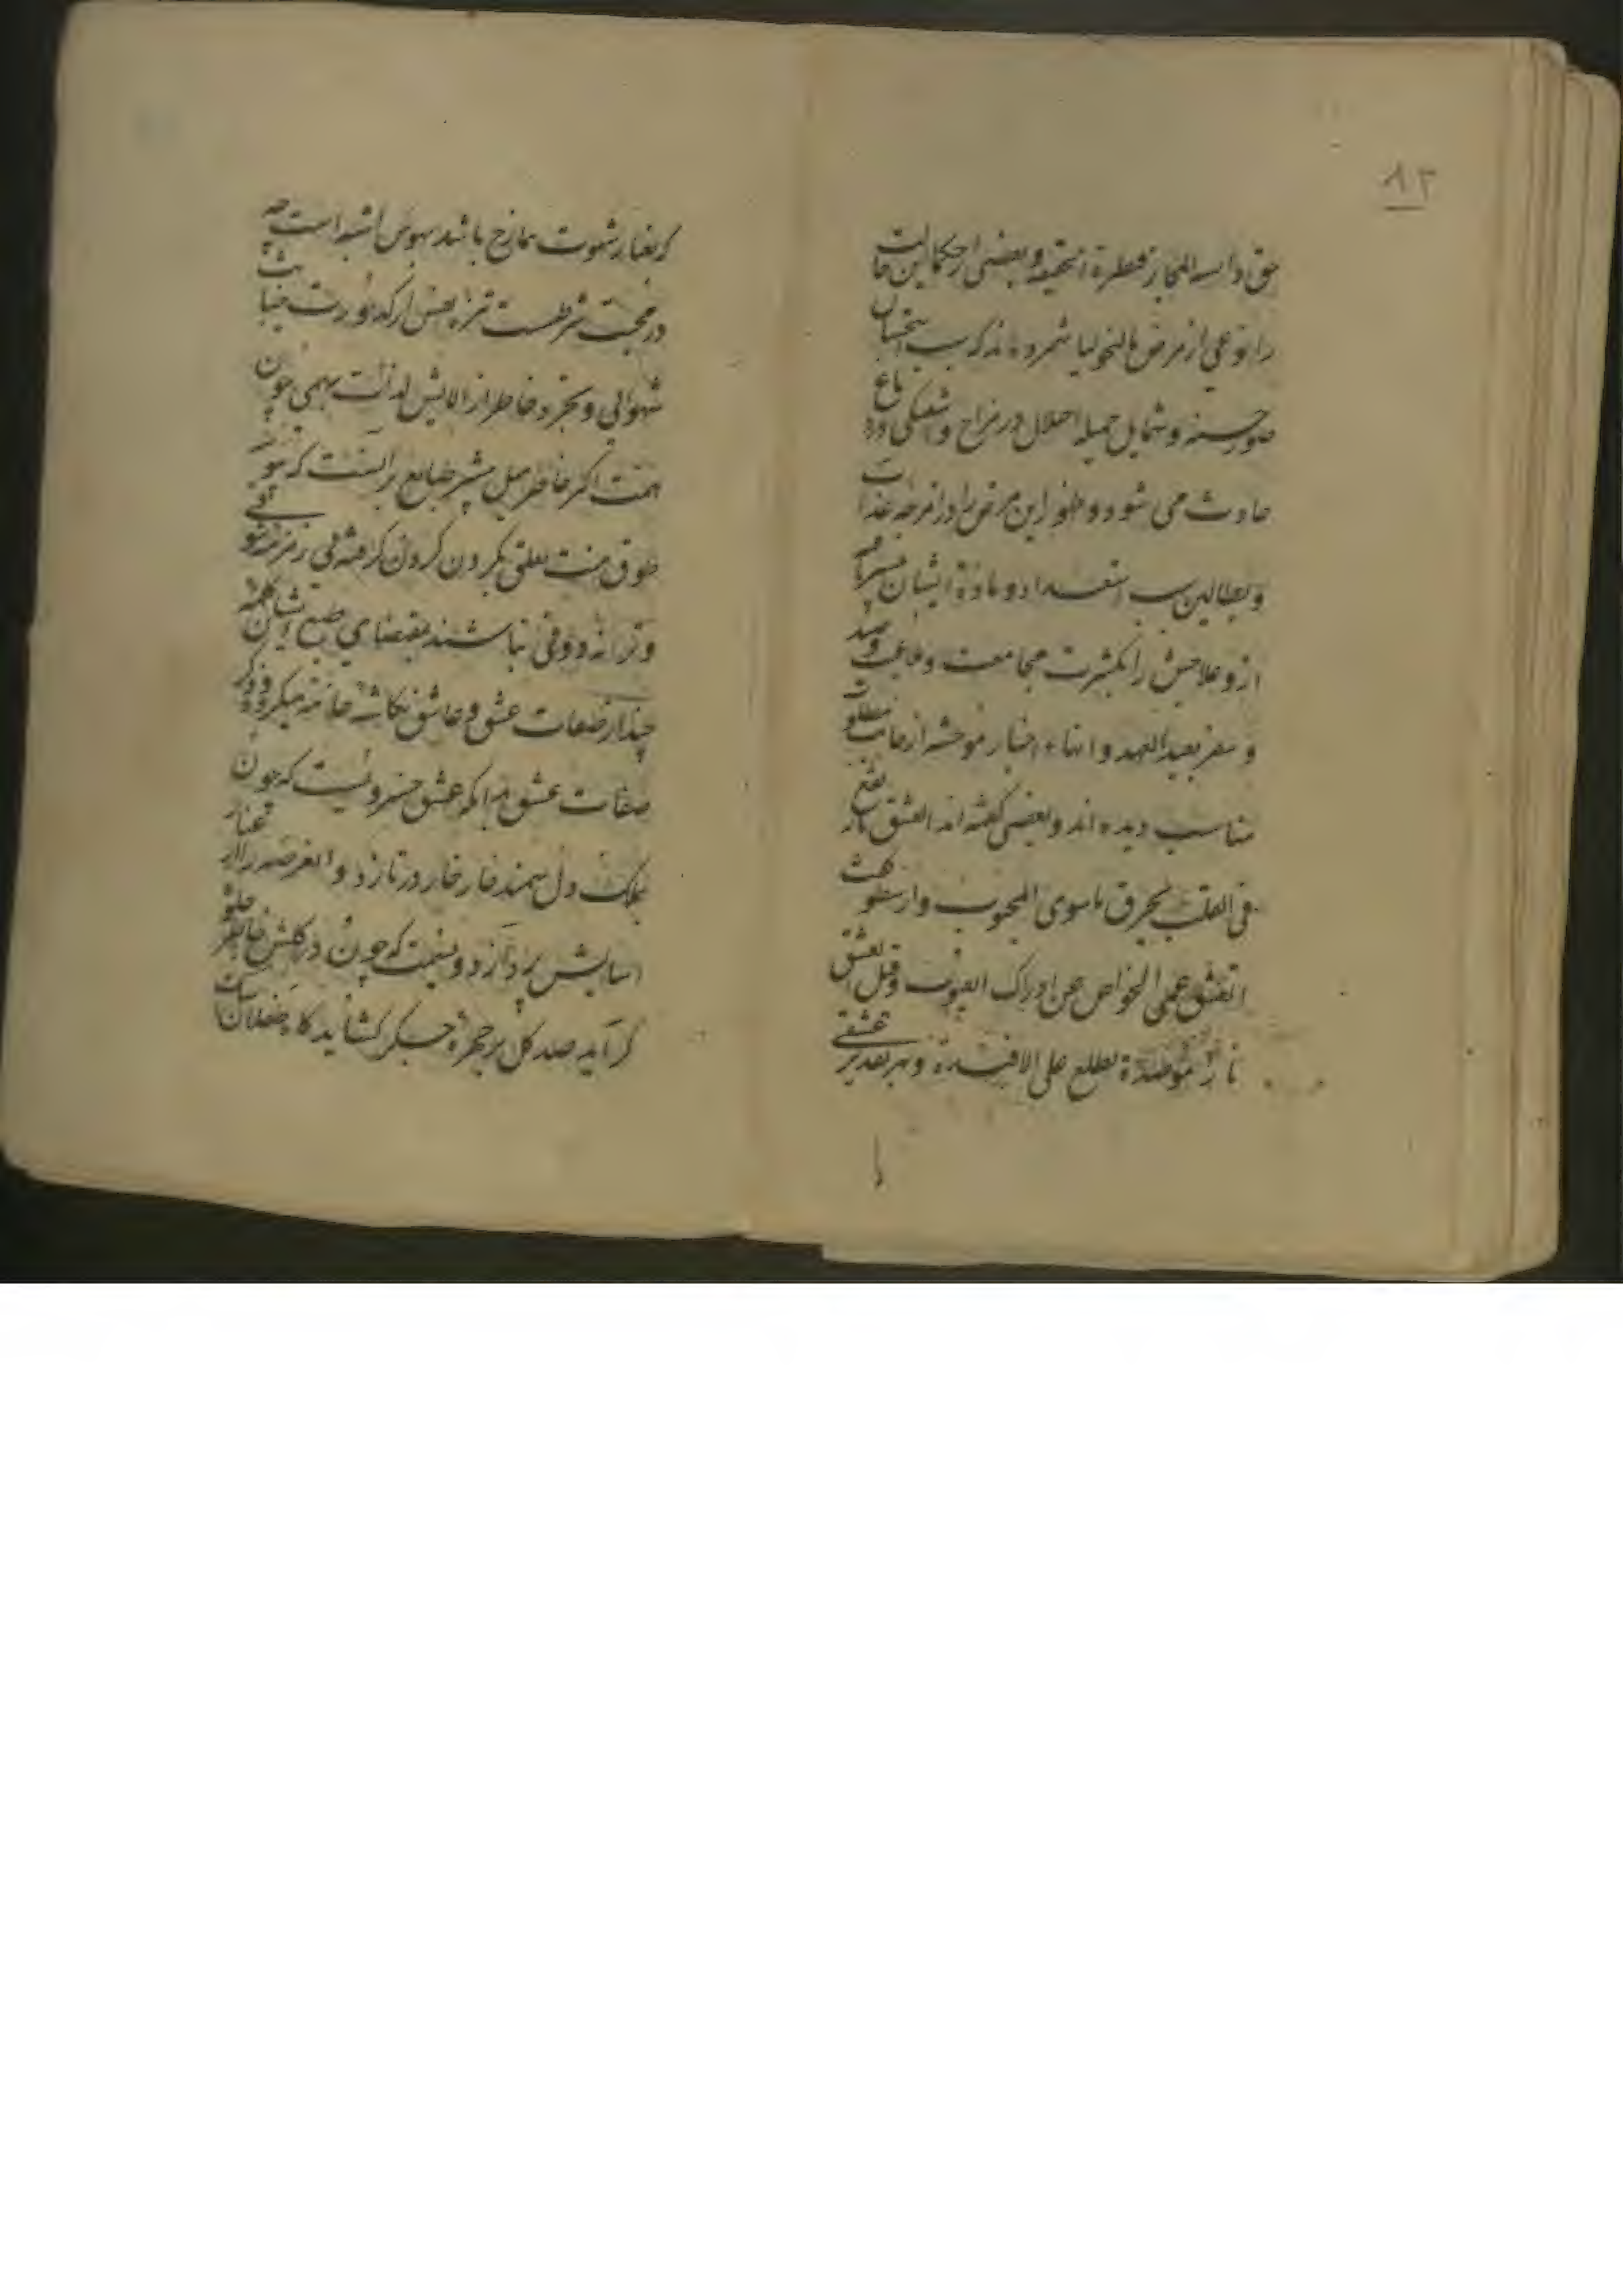 ۸۲
حق دانسته المجاز قنطرة الحقیقه و بعضی از حکما این حالت
را نوعی از مرض مالیخولیا شمرده اند که بسبب استحسان
صور حسنه و شمایل جمیله اختلال در مزاج و دماغ
حادث می شود و ظهور این مرض را در امزجه
و بطالین بسبب استعداد و ماده ایشان
از و علاجش را بکثرت مجامعت و
و سفر بعید العهد و انهاء اخبار موحشه از جانب مطلوب
مناسب دیده اند و بعضی گفته اند العشق نار تقع
فی القلب یحرق ماسوی المحبوب و ارسطو گفت
العشق عمی الحواس عن ادراک العیوب و قیل العشق
نار موصدة تطلع علی الافئدة و بهر تقدیر عشقی
که بغبار شهوت ممازج باشد بهوس اشبه است چه
در محبت شرطست تنزه نفس از کدورت خباثت
شهوانی و تجرد خاطر از الایش لذات بهیمی چون
همت اکثر خاطر میل بیشتر طبایع برانست که
طوق منت تعلقی بکردن کردون کرفته فی
و ترانه ذوقی نباشند بمقتضای طبع ایشان کلمه
چند از صفات عشق و عاشق نکاشته خامه میکردد ذکر
صفات عشق بدانکه عشق خسرویست که چون
بملک دل سمند خار خار در تازد و العرصه را از غبار
اسایش پردازد و نسیمیست که چون در کلشن خاطر جلوه
کر آید صد کل بر چهره جکر کشاید کاه